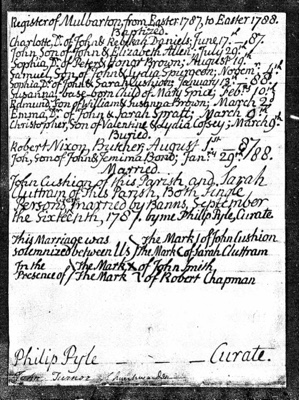 Register of Mulbarton, from Easter 1787, to Easter 1788.
Baptized.
Charlotte, D. of John & Rebekah Daniels, June 17th — 87.
John, Son of John & Elizabeth Allen, July 29th
Sophia, D. of Peter & Honor Brown, August 19th
Samuel, Son of John & Lydia Spurgeon, Novem. 1st
Sophia, D. of John & Sarah Cushion, January 13th — 88.
Susanna, base-born child of Mary Smee, Feb. 10th
Edmund, Son of William & Susanna Brown, March 2d
Emma, D. of John & Sarah Spratt, March 9th
Christopher, Son of Valentine & Lydia Cossey, March 9th
Buried.
Robert Nixon, Butcher, August 1st — 87.
Son of John & Jemima Bond, Jan. 29th /88.
Married.
John Cushion of this Parish and Sarah
Cluttram of this Parish, Both Single
Persons, married by Banns, September
the Sixteenth, 1787. by me Philip Pyle, Curate
This Marriage was } the Mark of John Cushion
solemnized between Us } the Mark of Sarah Cluttram
In the } the Mark of John Smith
Presence of } the Mark of Robert Chapman
Philip Pyle — Curate.
John Turner Churchwarden